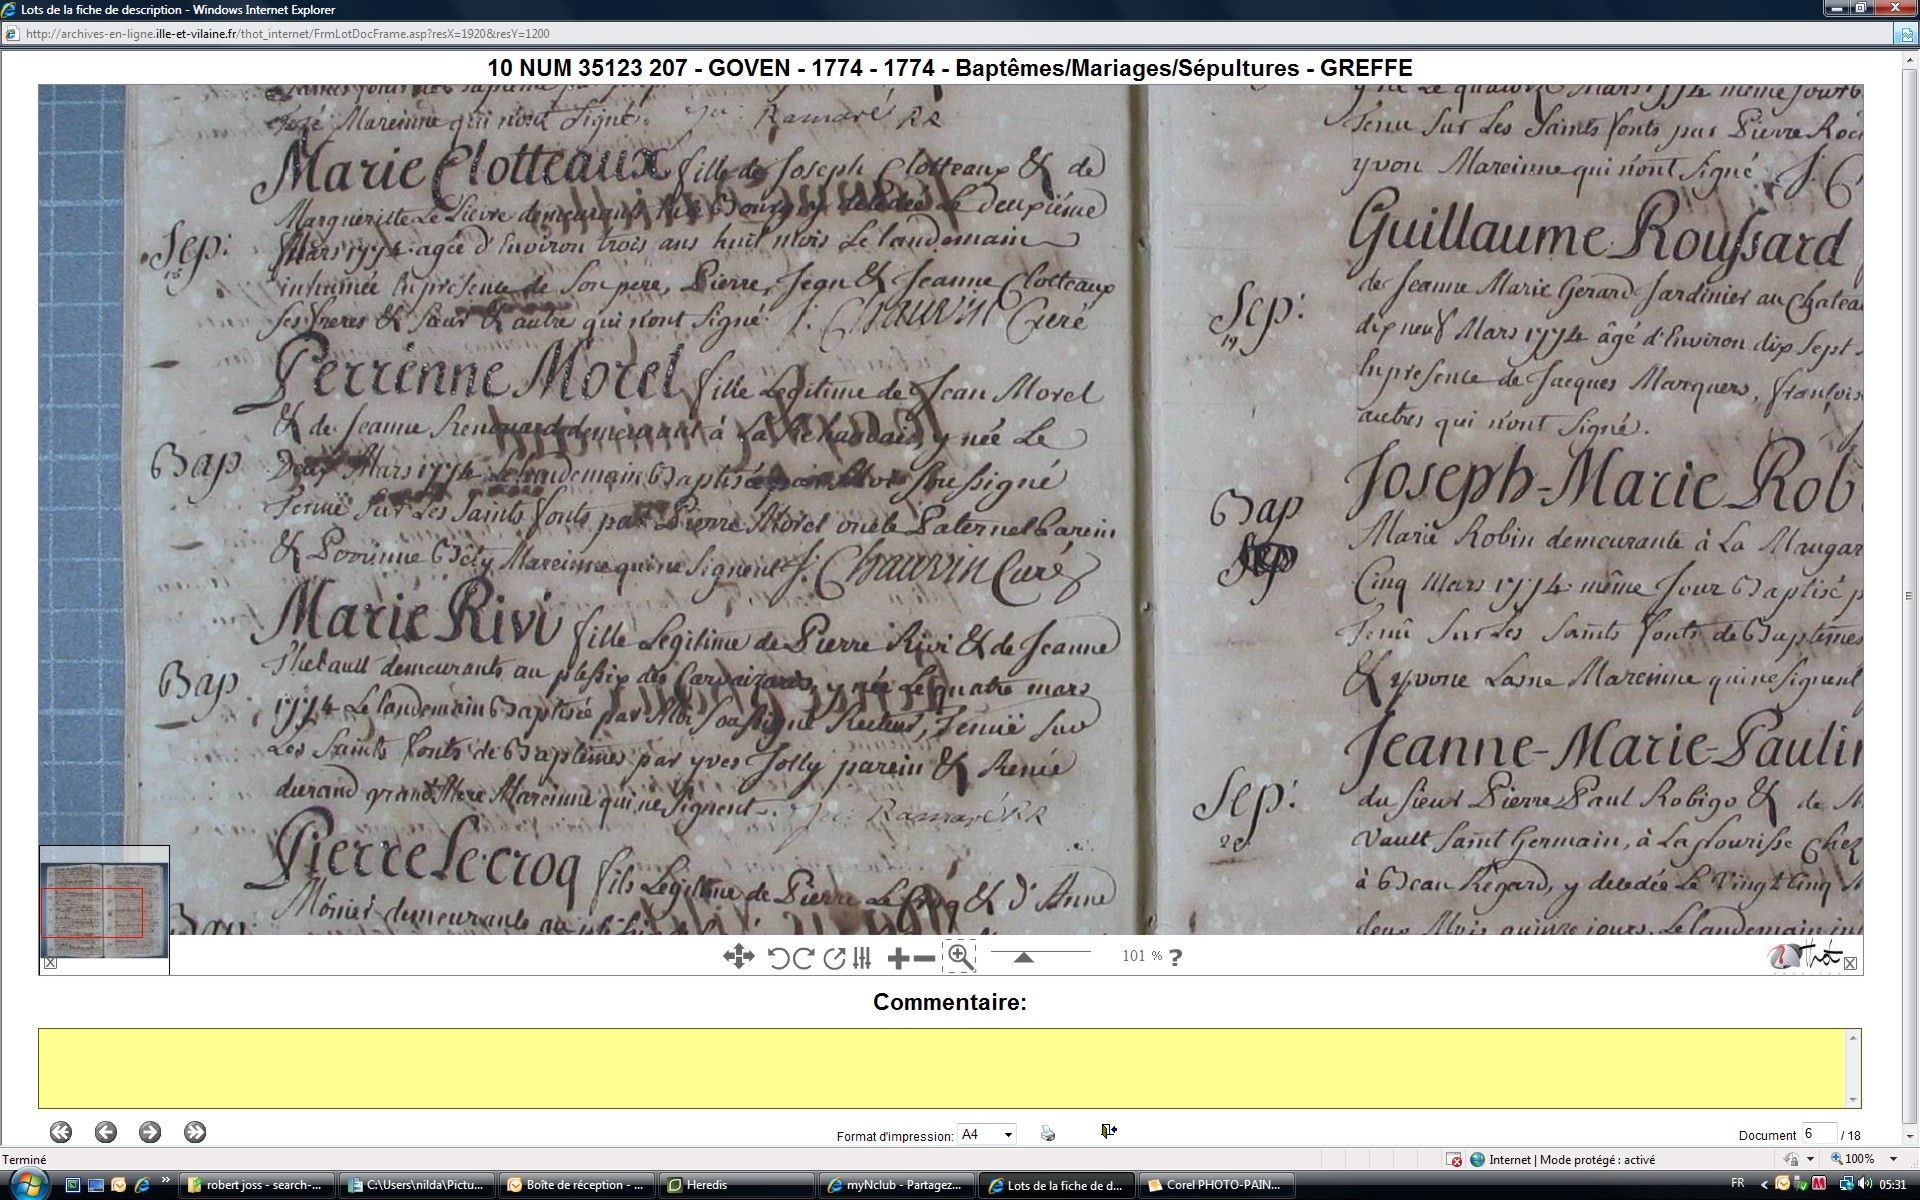 Lots de la fiche de description - Windows Internet Explorer
http://archives-en-ligne.ille-et-vilaine.fr/thot_internet/FrmLotDocFrame.asp?resX=1920&resY=1200
10 NUM 35123 207 - GOVEN - 1774 - 1774 - Baptêmes/Mariages/Sépultures - GREFFE
Mareinne qui n'ont Signé. Ramaré RR
Marie Clotteaux fille de Joseph Clotteaux & de
Margueritte Le Lievre demeurant Bourg y decedée Le deuxiéme
Sep: Mars 1774 agée d'Environ trois ans huit mois Le landemain
inhumée En presence de Son pere, Pierre, Jean & Jeanne Clotteaux
ses freres & Sœur & autre qui n'ont Signé. J. Chauvin Curé
Perrenne Morel fille Legitime de Jean Morel
& de Jeanne demeurant à La y née Le
Bap Deux Mars 1774 Le landemain Baptisée par Moi Soussigné
Tenuë Sur Les Saints fonts par Pierre Morel oncle Paternel Parein
& Perrinne Mareinne qui ne Signent J. Chauvin Curé
Marie Rivi fille Legitime de Pierre Rivi & de Jeanne
Thebault demeurants au plessix des y née Le quatre mars
Bap 1774 Le landemain Baptisée par Moi Soussigné Recteur, Tenuë Sur
Les Saints fonts de Baptêmes par yves Jolly parein & Renée
durand grand Mere Mareinne qui ne Signent. Ramaré RR
Pierre Le croq fils Legitime de Pierre Le Croq & d'Anne
Mônier demeurants au
Bap
y né Le quatorze Mars 1774 même Jour B
Tenu Sur Les Saints fonts par Pierre
yvon Mareinne qui n'ont Signé J. C
Guillaume Roussard
de Jeanne Marie Gerard Jardinier au Chatea
Sep: 19 dix neuf Mars 1774 âgé d'Environ dix Sept
En presence de Jacques Marquers, françois
autres qui n'ont Signé.
Joseph-Marie Rob
Bap Marie Robin demeurante à La Maugar
Sep Cinq Mars 1774 même Jour Baptisé p
Tenû Sur Les Saints fonts de Baptêmes
& yvone Lasne Mareinne qui ne Signent
Jeanne-Marie-Paulin
Sep: du Sieur Pierre Paul Robigo & de
Vault Saint Germain, à La Chez
à Beau Regard, y decedée Le Vingt Cinq M
deux Mois quinze jours, Le landemain in
101 % ?
Thot
Commentaire:
Format d'impression: A4
Document 6 / 18
Terminé
Internet | Mode protégé : activé
100%
robert joss - search-...
C:\Users\nilda\Pictu...
Boîte de réception - ...
Heredis
myNclub - Partagez...
Lots de la fiche de d...
Corel PHOTO-PAIN...
FR
05:31